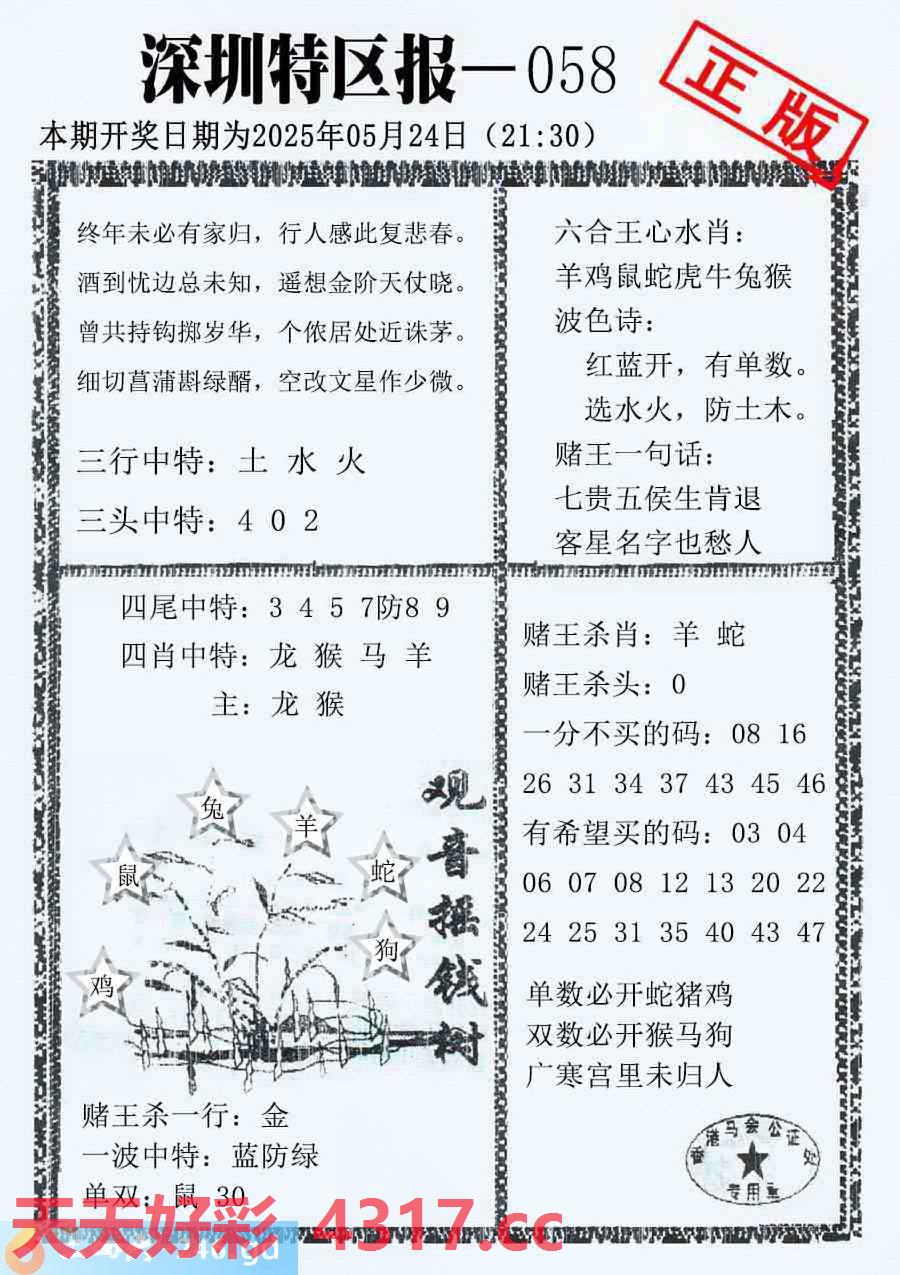 深圳特区报—058
正版
本期开奖日期为2025年05月24日（21:30）
终年未必有家归，行人感此复悲春。
酒到忧边总未知，遥想金阶天仗晓。
曾共持钩掷岁华，个侬居处近诛茅。
细切菖蒲斟绿醑，空改文星作少微。
三行中特：土 水 火
三头中特：4 0 2
六合王心水肖：
羊鸡鼠蛇虎牛兔猴
波色诗：
红蓝开，有单数。
选水火，防土木。
赌王一句话：
七贵五侯生肯退
客星名字也愁人
四尾中特：3 4 5 7防8 9
四肖中特：龙 猴 马 羊
主：龙 猴
兔
羊
鼠
蛇
狗
鸡
观音摇钱树
赌王杀一行：金
一波中特：蓝防绿
单双：鼠 30
赌王杀肖：羊 蛇
赌王杀头：0
一分不买的码：08 16
26 31 34 37 43 45 46
有希望买的码：03 04
06 07 08 12 13 20 22
24 25 31 35 40 43 47
单数必开蛇猪鸡
双数必开猴马狗
广寒宫里未归人
香港马会公证处
专用章
天天好彩 4317.cc